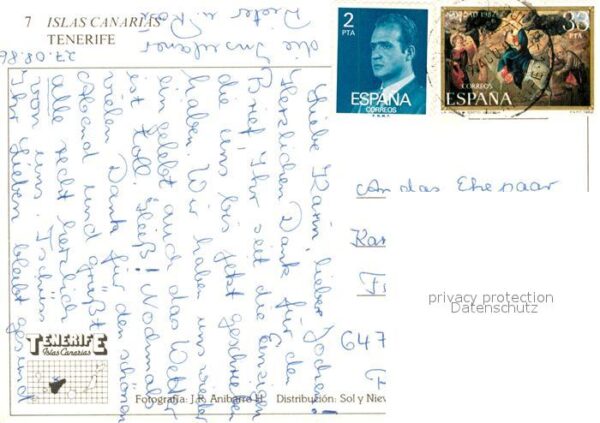 7 ISLAS CANARIAS
TENERIFE
27.08.86
Liebe Karin, lieber
Herzlichen Dank für den
Brief, Ihr seit die Einzigen
die uns bis jetzt geschrieben
haben. Wir haben uns wieder
ein gelebt auch das Wetter
ist toll. heiß! Nochmals
vielen Dank für den schönen
Abend und grüßt
alle recht herzlich
von uns. Tschüss
Ihr Lieben bleibt gesund
die Insulaner
Dieter u. Rosi
2
PTA
ESPAÑA
CORREOS
NAVIDAD 1982
33
PTA
CORREOS
ESPAÑA
An das Ehepaar
Kar
F
647
F
privacy protection
Datenschutz
TENERIFE
Islas Canarias
Fotografía: J.R. Anibarro H. Distribución: Sol y Niev